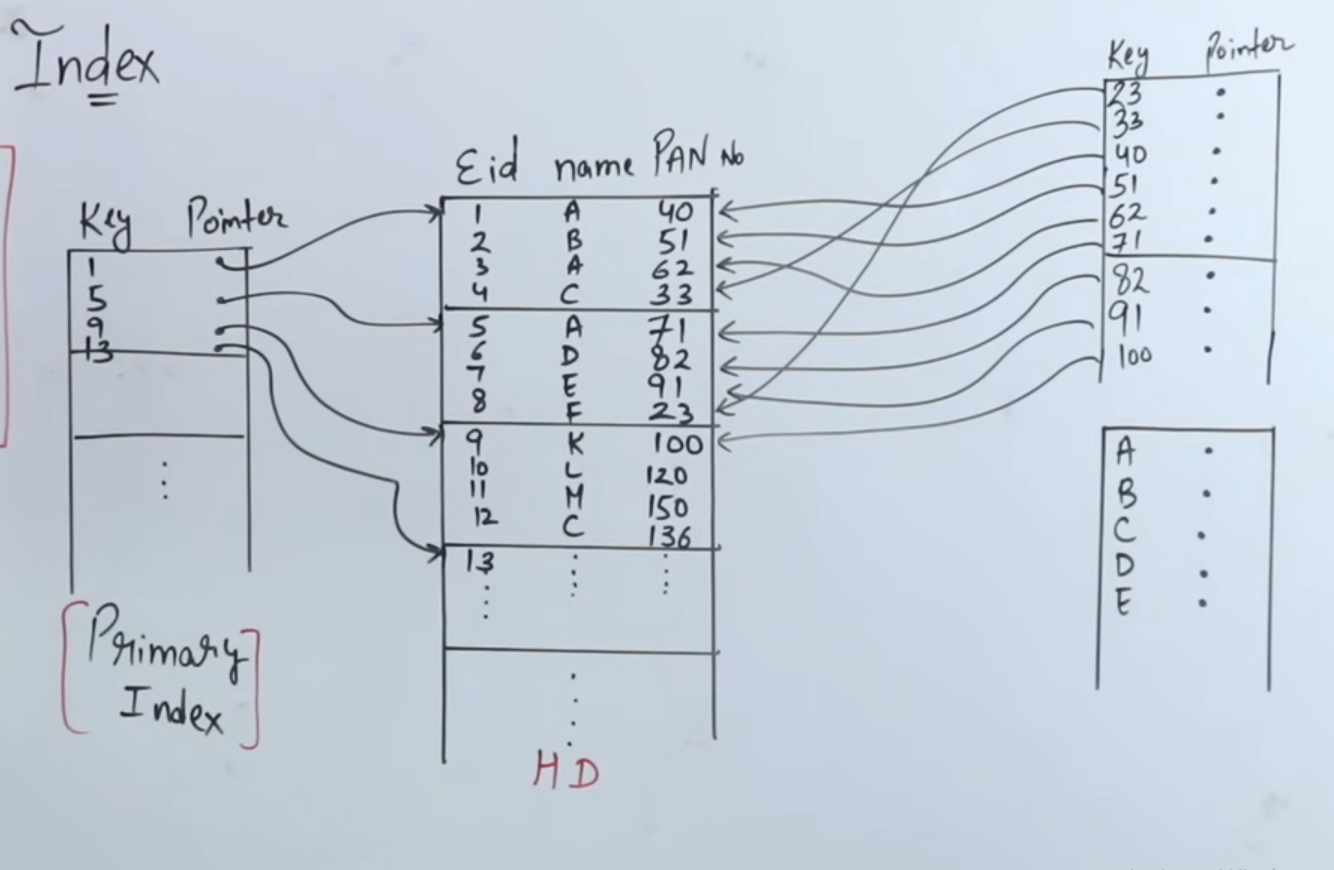 Index
Key Pointer
1
5
9
13
Primary
Index
Eid name PAN No
1 A 40
2 B 51
3 A 62
4 C 33
5 A 71
6 D 82
7 E 91
8 F 23
9 K 100
10 L 120
11 M 150
12 C 136
13
HD
Key Pointer
23
33
40
51
62
71
82
91
100
A
B
C
D
E